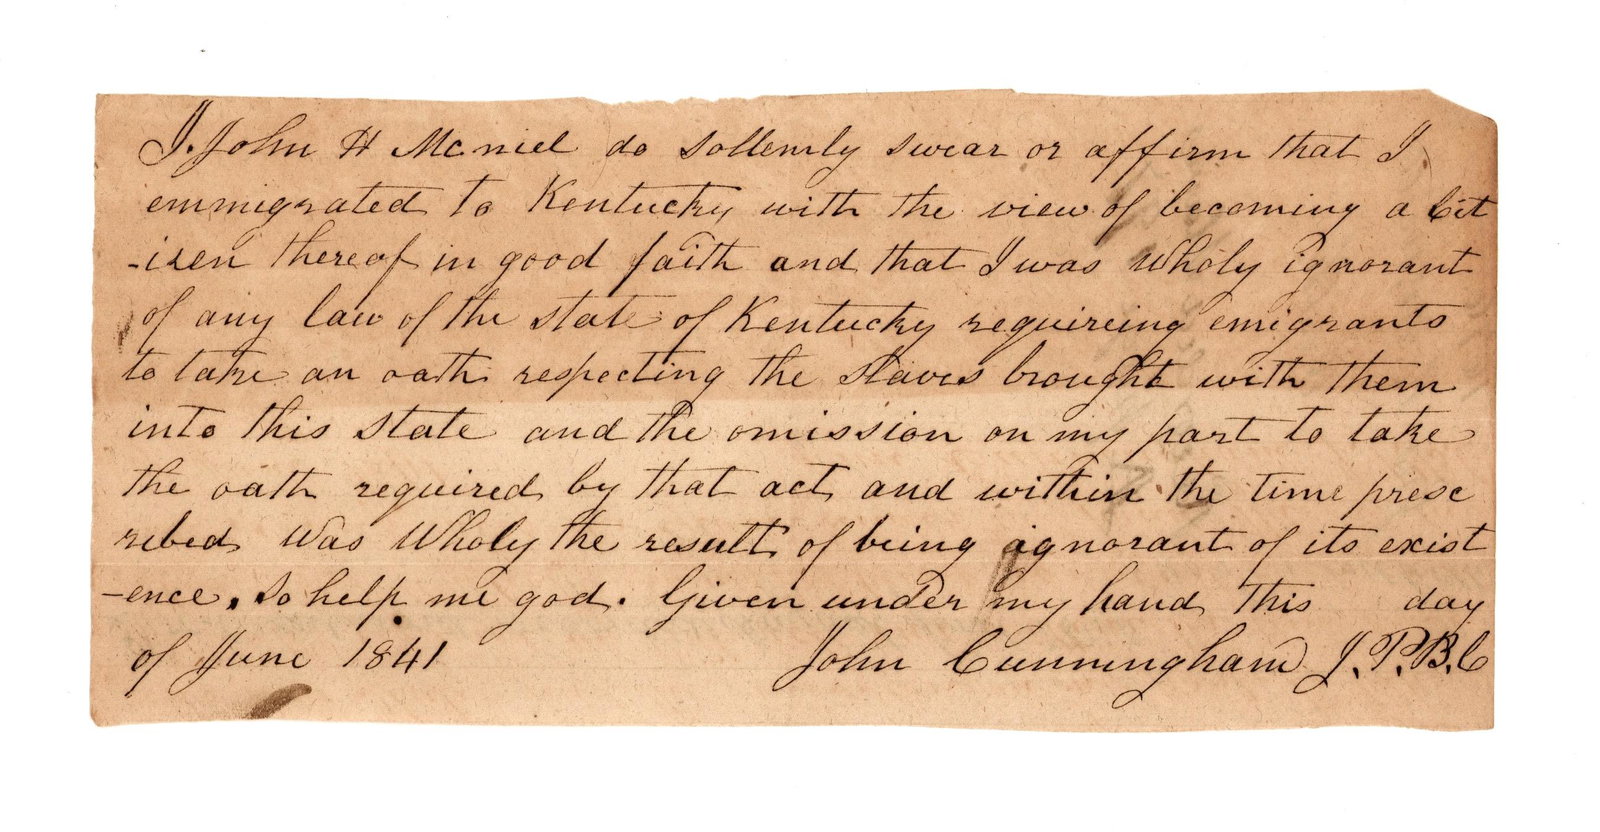 I. John H Mcniel do sollemly swear or affirm that I
emmigrated to Kentucky with the view of becoming a Cit
-izen thereof in good faith and that I was wholy ignorant
of any law of the state of Kentucky requireing emigrants
to take an oath respecting the slaves brought with them
into this state and the omission on my part to take
the oath required by that act and within the time presc
ribed was wholy the result of being ignorant of its exist
-ence. So help me god. Given under my hand this day
of June 1841 John Cunningham J.P.B.C